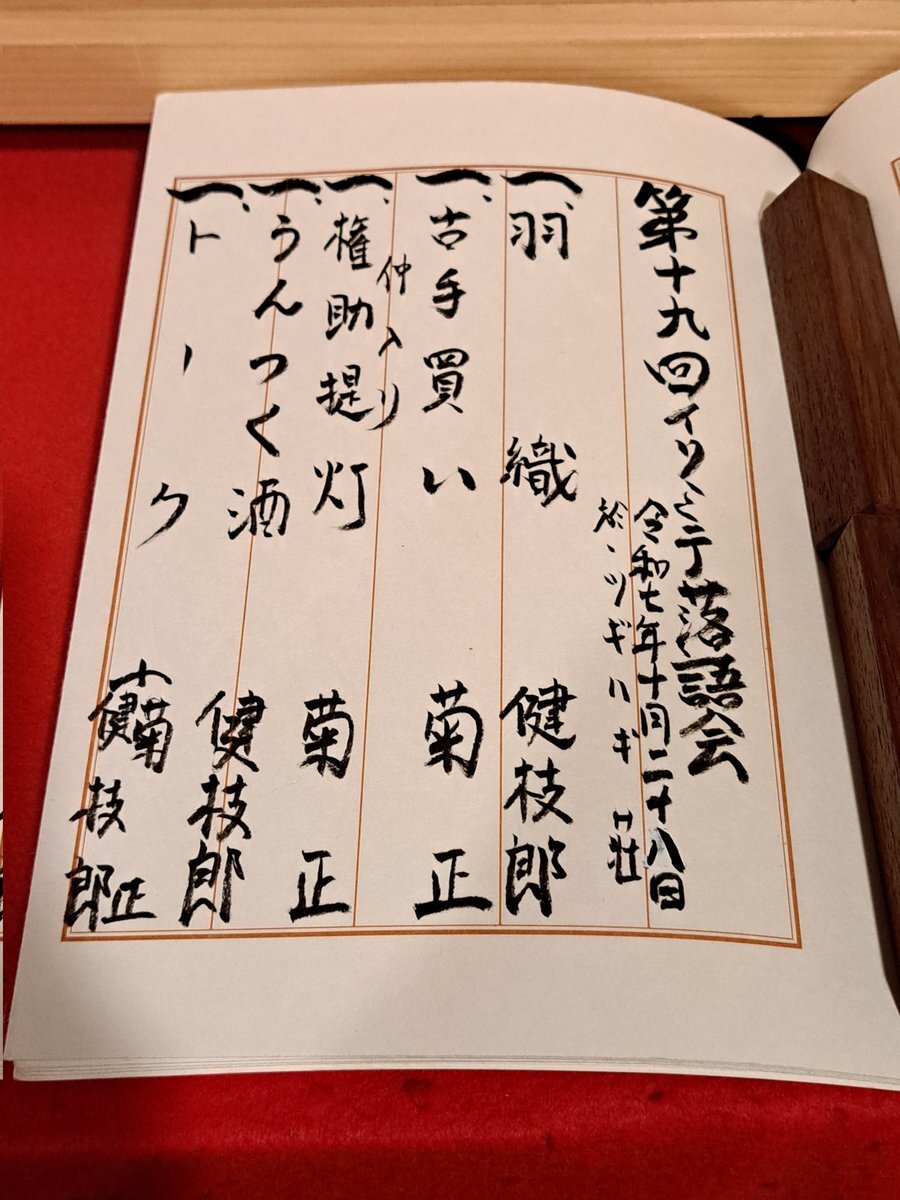 第十九回 落語会
令和七年十月二十八日
於、ツギハギ荘
一、羽織 健枝郎
一、古手買い 菊正
仲入り
一、権助提灯 菊正
一、うんつく酒 健枝郎
一、トーク 菊正
健枝郎